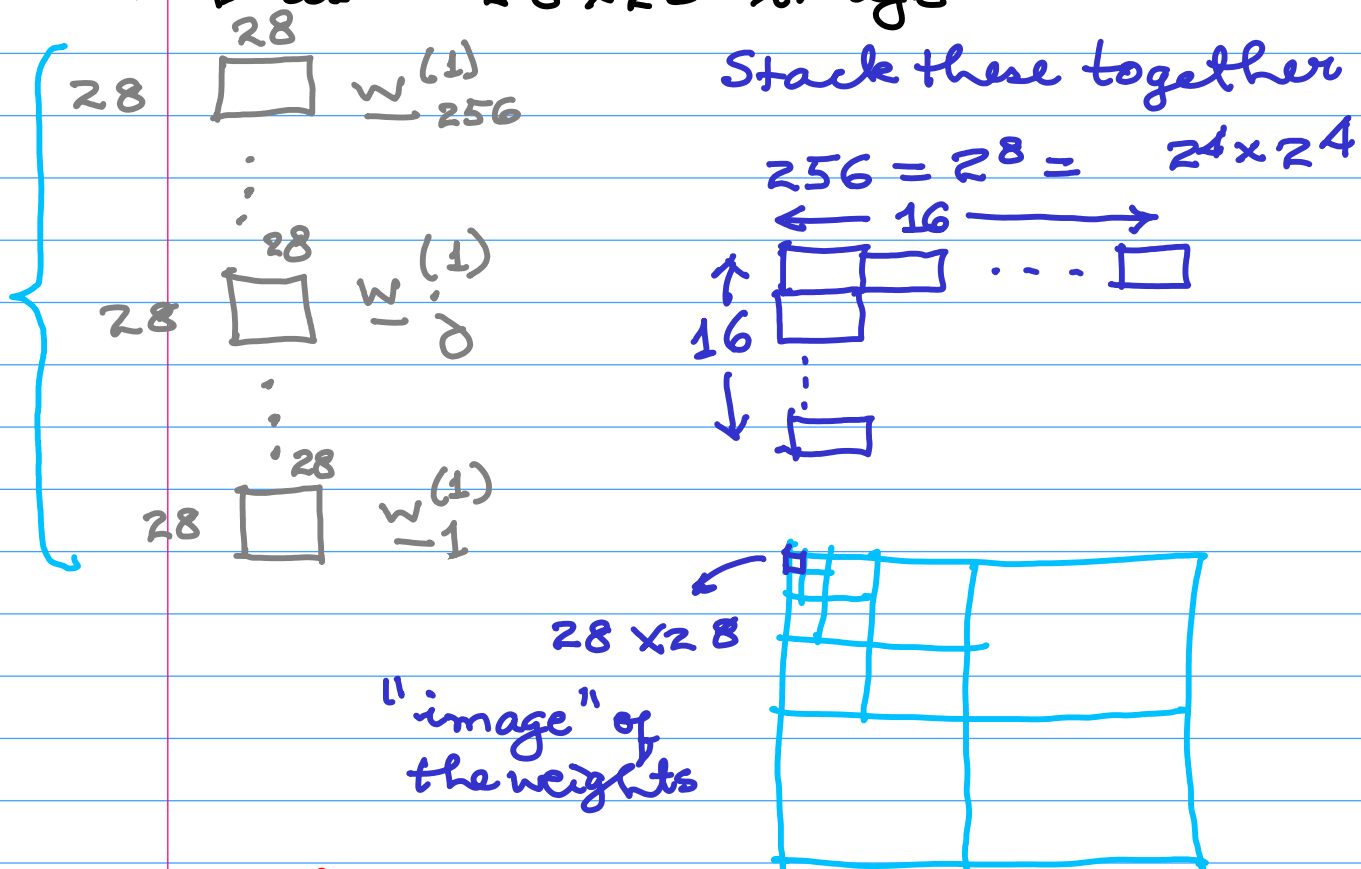 28 x 28 image
28
28 w^{(1)}_{256}
28
28 w^{(1)}_{j}
28
28 w^{(1)}_{1}
Stack these together
256 = 2^8 = 2^4 x 2^4
16
16
28 x 28
"image" of
the weights